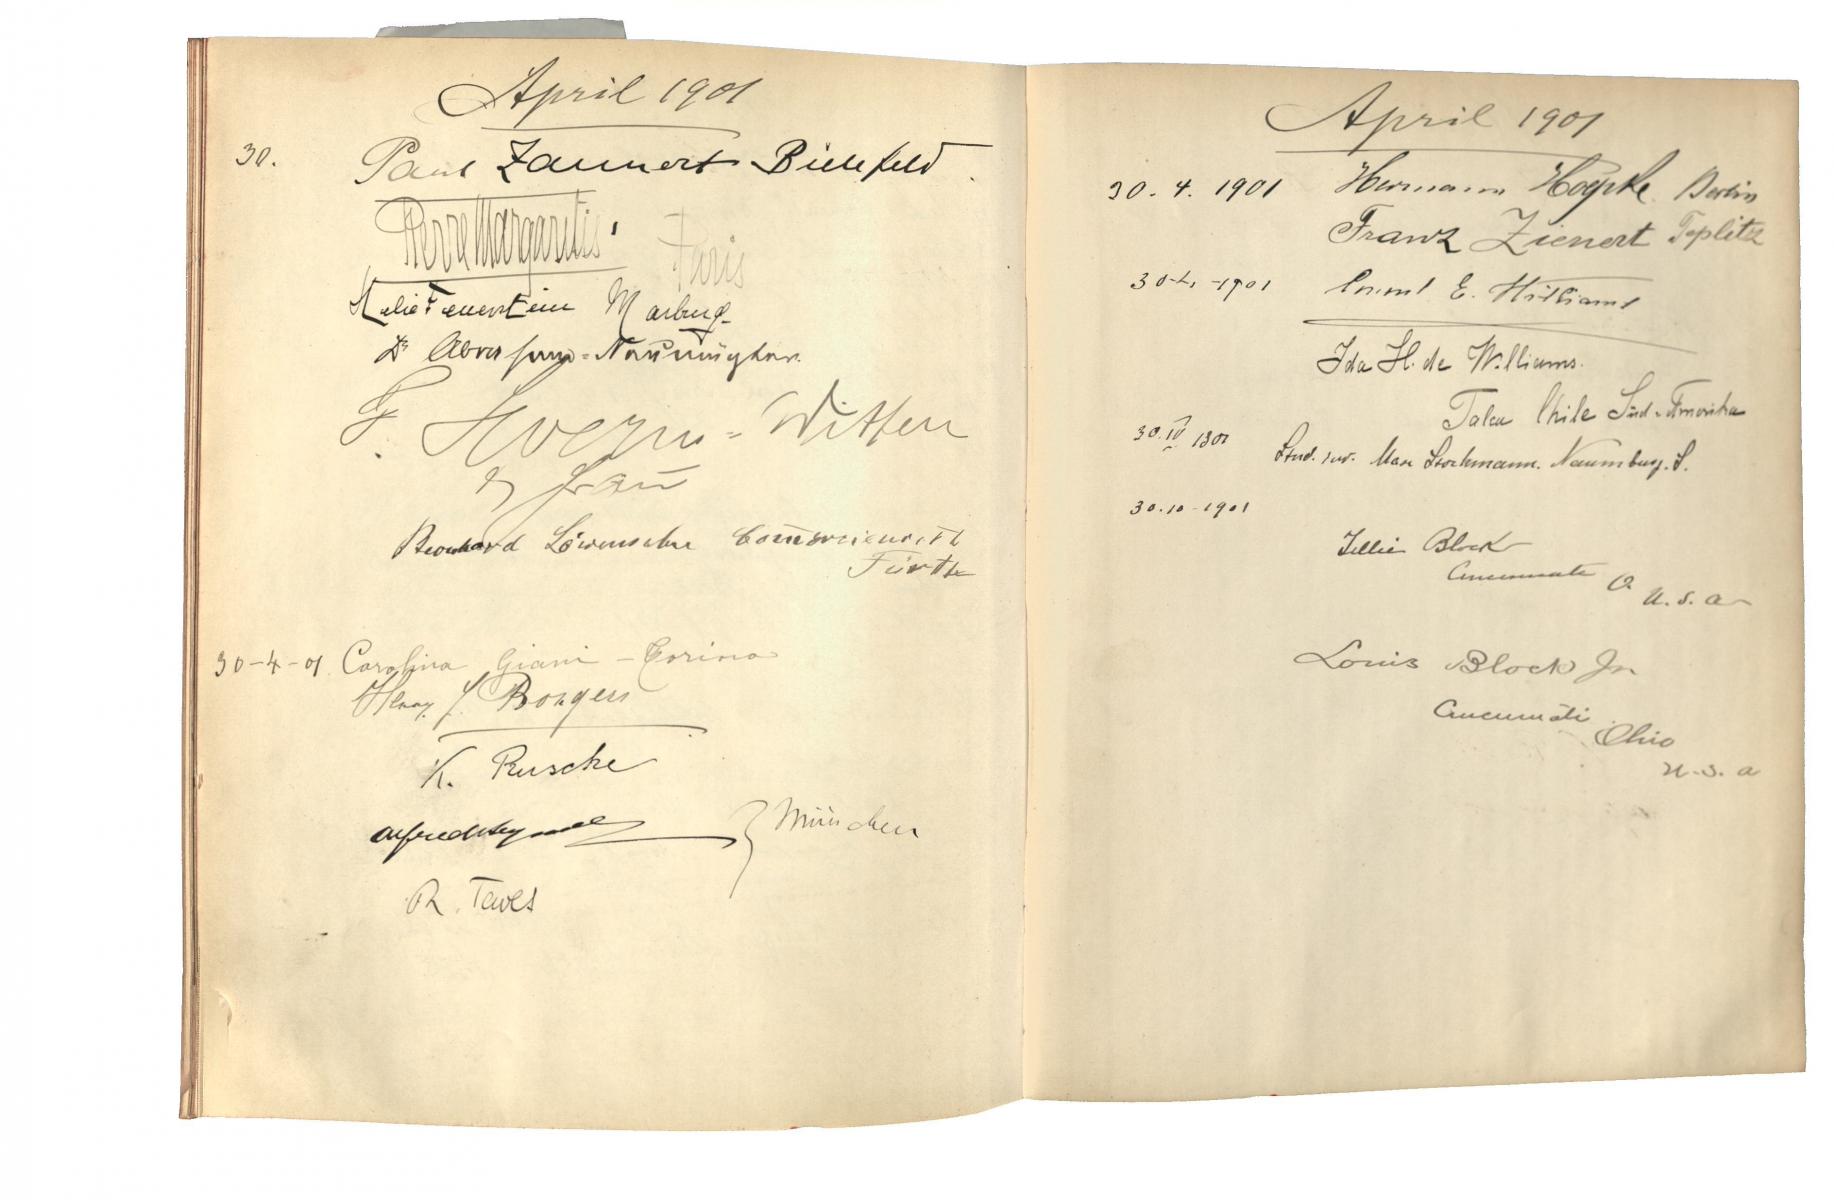 April 1901
30. Paul Zaunert Bielefeld
Pierre Margaritis. Paris
Feuerstein Marburg
Dr
F. Witten
& Frau
Bernhard
Fürth
30-4-01 Carolina Giani - Torino
Henry J. Borgers
K. Ruscke
Alfred
München
R. Tewes
April 1901
30. 4. 1901 Hermann Hoepke Berlin
Franz Zienert Teplitz
30-4-1901 E. Williams
Ida H. de Williams.
Talca Chile Süd-Amerika
30. IV 1801
Stud. iur. Max Stockmann. Naumburg. S.
30.10-1901
Tillie Block
Cincinnati O.
U. S. A
Louis Block Jr
Cincinnati
Ohio
U. S. A